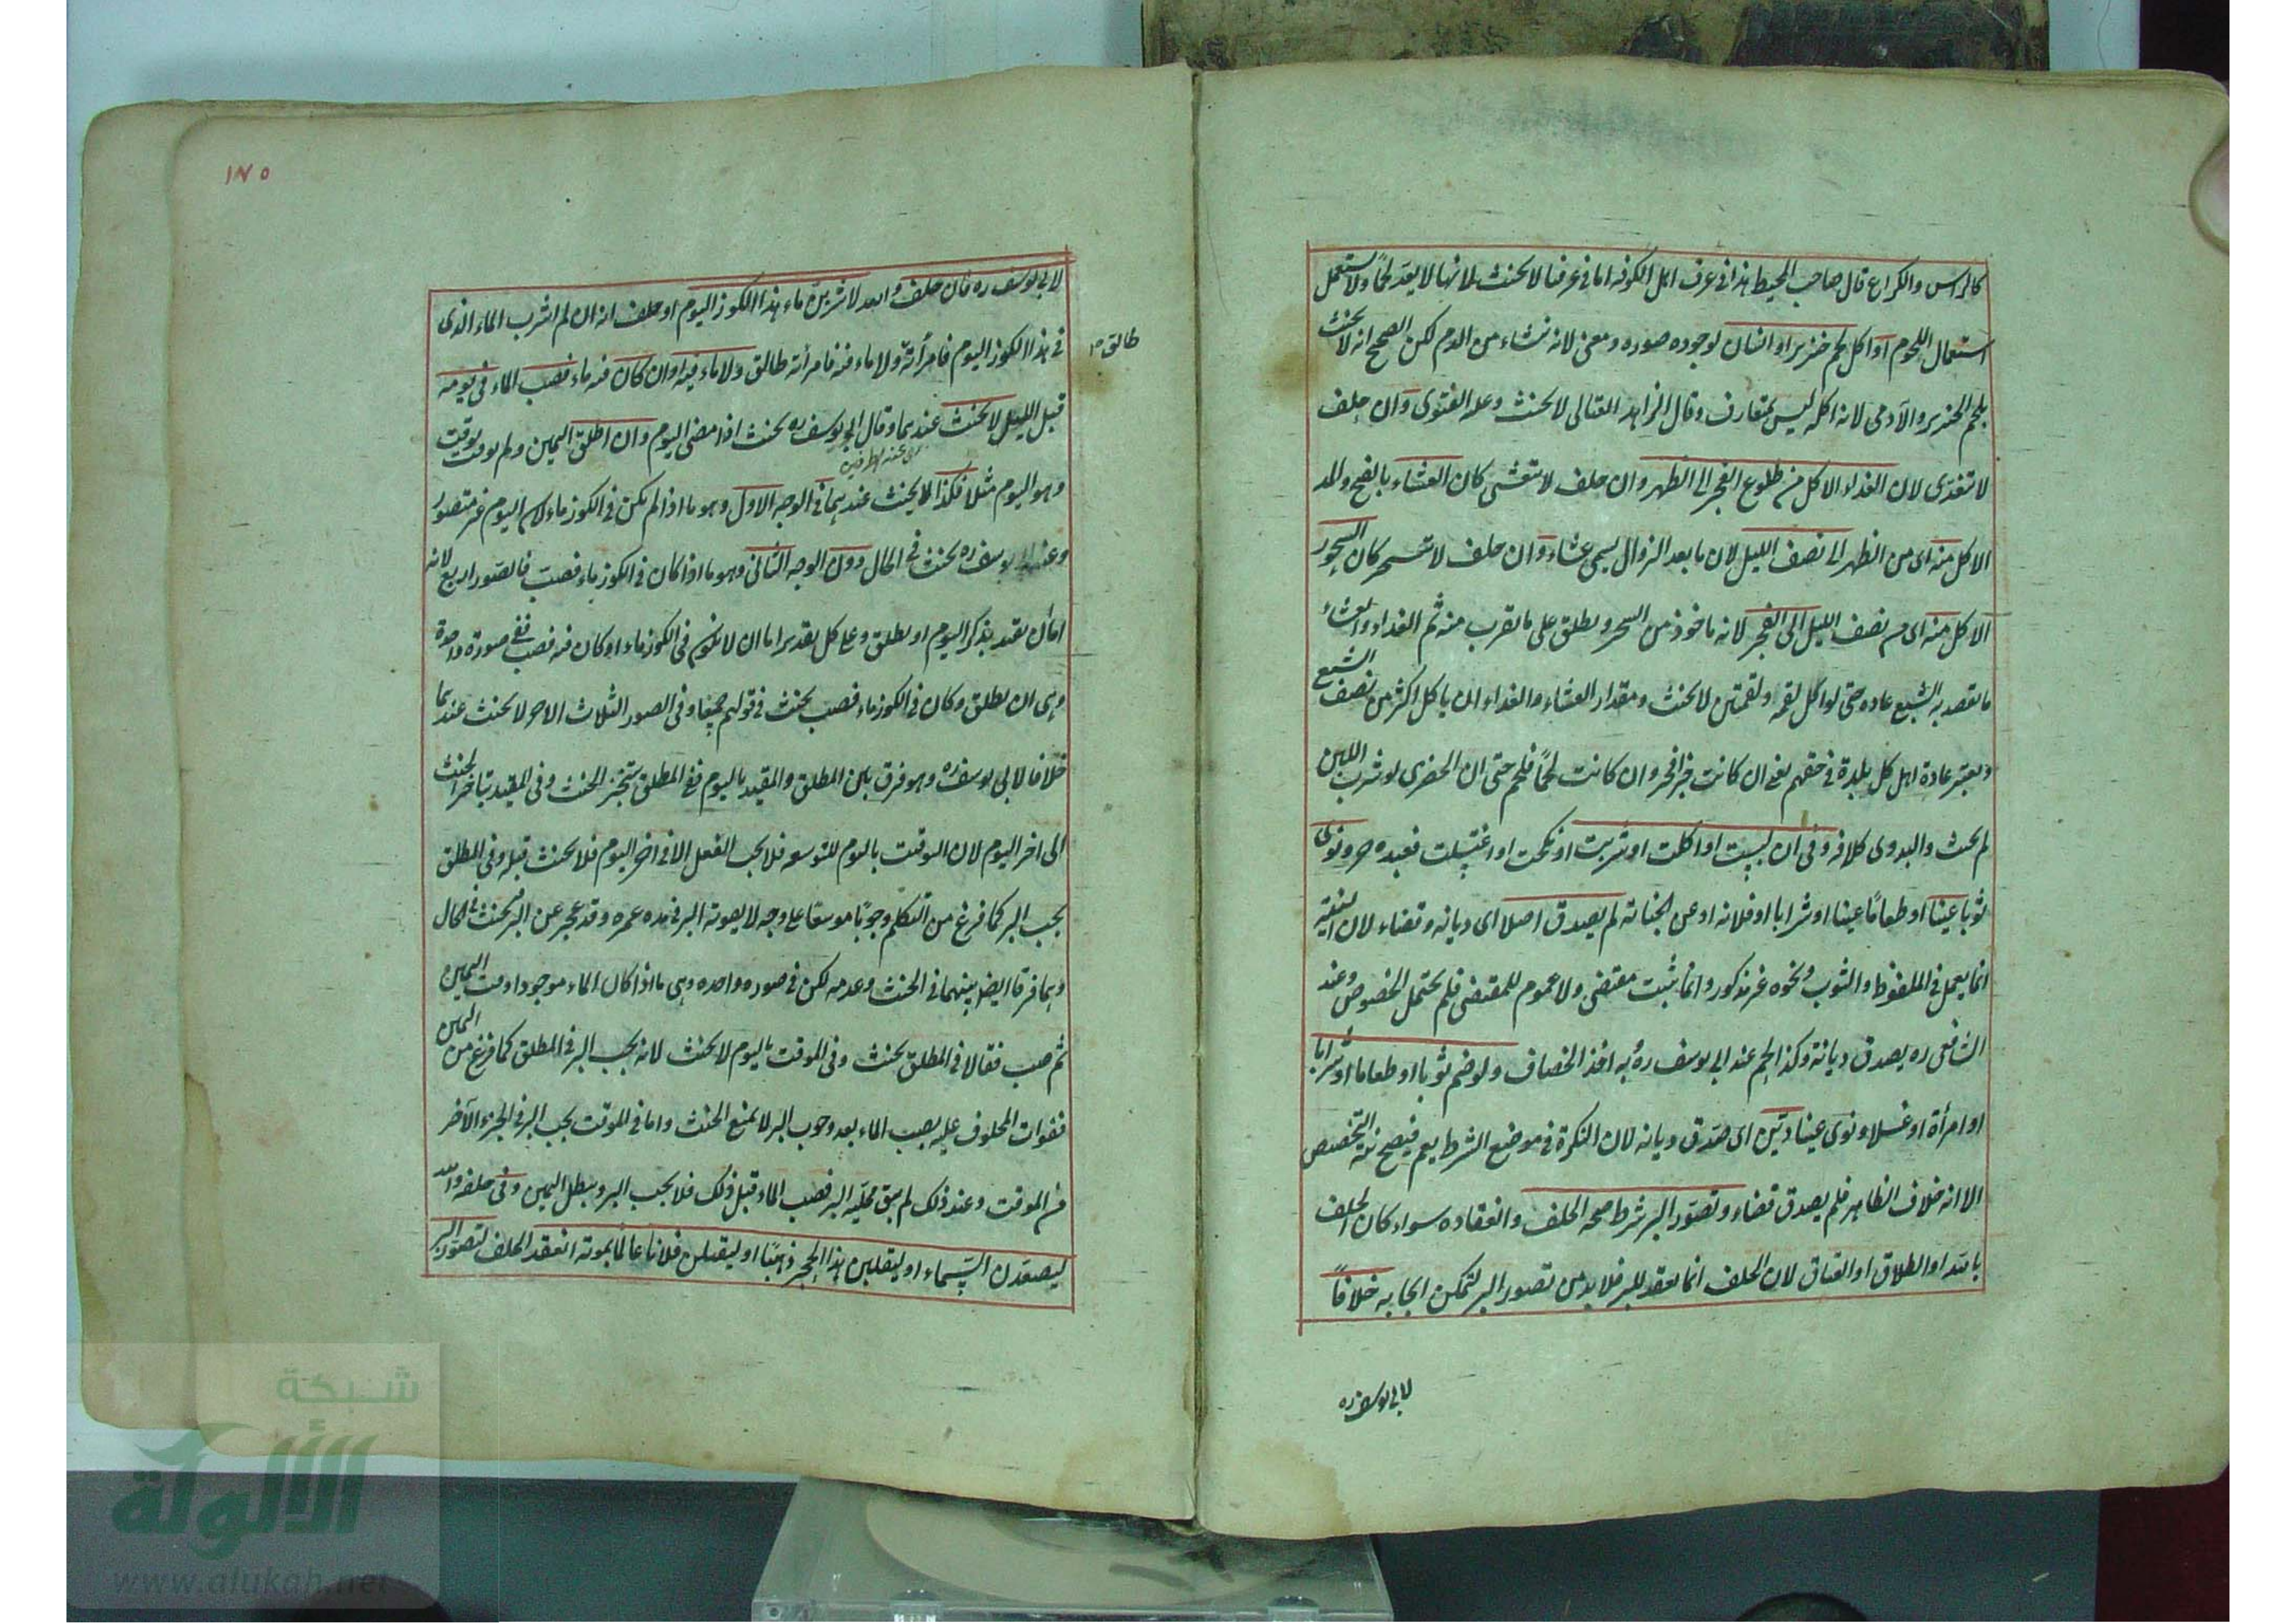 كالراس والكراع قال صاحب المحيط هذا في عرف اهل الكوفه اما في عرفنا لا يحنث لانها لا يعد لحمًا ولا يستعمل
استعمال اللحوم او اكل لحم خنزير او انسان لوجوده صوره ومعنى لانه نشاء من الدم لكن الصحيح انه لا يحنث
بلحم الخنزير والآدمى لانه اكله ليس بمتعارف وقال الزاهد العتالى لا يحنث وعله الفتوى وان حلف
لا تغدى لان الغداء الاكل من طلوع الفجر الى الظهر وان حلف لا تتعشى كان العشاء بالفتح والمد
الاكل منه اى من الظهر الى نصف الليل لان ما بعد الزوال يسمى عشاء وان حلف لا تتسحر كان السحور
الاكل منه اى من نصف الليل الى الفجر لانه ماخوذ من السحر ويطلق على ما يقرب منه ثم الغداء والعشاء
ما يقصد به الشبع عاده حتى لو اكل لقمه او لقمتين لا يحنث ومقدار العشاء والغداء ان ياكل اكثر من نصف الشبع
ويعتبر عادة اهل كل بلدة في حقهم يعنى ان كانت خبزا فخبز وان كانت لحمًا فلحم حتى ان الحضرى لو شرب اللبن
لم يحنث والبدوى بخلافه وفى ان لبست او اكلت او شربت او نكحت او اغتسلت فعبده حر ونوى
ثوبا عينا او طعامًا عينا او شرابا او فلانه او عن الجنابه لم يصدق اصلا اى ديانه وقضاء لان النيه
انما يعمل في الملفوظ والثوب ونحوه غير مذكور وانما ثبت مقتضى ولا عموم للمقتضى فلم يحتمل الخصوص وعند
الشافعى ره يصدق ديانة وكذا الحكم عند ابى يوسف ره وبه اخذ الخصاف ولو ضم ثوبا او طعاما او شرابا
او امرأة او غسلا ونوى عينا ديّن اى صدّق ديانه لان النكرة في موضع الشرط يعم فيصح نيه التخصيص
الا انه خلاف الظاهر فلم يصدق قضاء وتصوّر البر شرط صحه الحلف وانعقاده سواء كان الحلف
بالله او الطلاق او العتاق لان الحلف انما يعقد للبر فلا بد من تصور البر لتمكن ايجابه خلافاً
لابى يوسف ره
١٧٥
لابى يوسف ره فان حلف والله لاشربنّ ماء هذا الكوز اليوم او حلف انه ان لم اشرب الماء الذى
في هذا الكوز اليوم فامرأته ولا ماء فيه فامرأته طالق ولا ماء فيه او ان كان فيه ماء فصب الماء في يومه
طالق
قبل الليل لا يحنث عندهما وقال ابو يوسف ره يحنث اذا مضى اليوم وان اطلق اليمين ولم يوقت بوقت
وهو اليوم مثلا فكذا لا يحنث عندهما في الوجه الاول وهو ما اذا لم يكن في الكوز ماء لان اليوم غير متصور
وعند ابى يوسف ره يحنث في الحال دون الوجه الثانى وهو ما اذا كان في الكوز ماء فصبّ فالصور اربع لانه
اما ان يقيد بذكر اليوم او يطلق وعلى كل تقدير اما ان لا يكون في الكوز ماء او كان فيه فصب ففى صورة واحدة
وهى ان يطلق وكان في الكوز ماء فصب يحنث في قولهم جميعا وفى الصور الثلاث الاخر لا يحنث عندهما
خلافا لابى يوسف ره وهو فرق بين المطلق والمقيد باليوم ففى المطلق يتنجز الحنث وفى المقيد يتاخر الحنث
الى اخر اليوم لان الوقت باليوم للتوسعه فلا يجب الفعل الا في اخر اليوم فلا يحنث قبله وفى المطلق
يجب البر كما فرغ من التكلم وجوبًا موسعا على وجه لا يفوته البر في مده عمره وقد عجز عن البر فيحنث في الحال
وهما فرقا ايضا بينهما في الحنث وعدمه لكن في صوره واحده وهى ما اذا كان الماء موجودا وقت اليمين
ثم صب فقالا في المطلق يحنث وفى الموقت باليوم لا يحنث لانه يجب البر في المطلق كما فرغ من اليمين
ففوات المحلوف عليه بصب الماء بعد وجوب البر لا يمنع الحنث واما في الموقت يجب البر في الجزء الآخر
من الموقت وعند ذلك لم يبق محليه البر فصب الماء قبل ذلك فلا يجب البر ويبطل اليمين وفى حلفه والله
ليصعدن السّماء او ليقلبن هذا الحجر ذهبًا او ليقتلن فلانا عالمًا بموته انعقد الحلف لتصوّر البر
شبكة
الألوكة
www.alukah.net